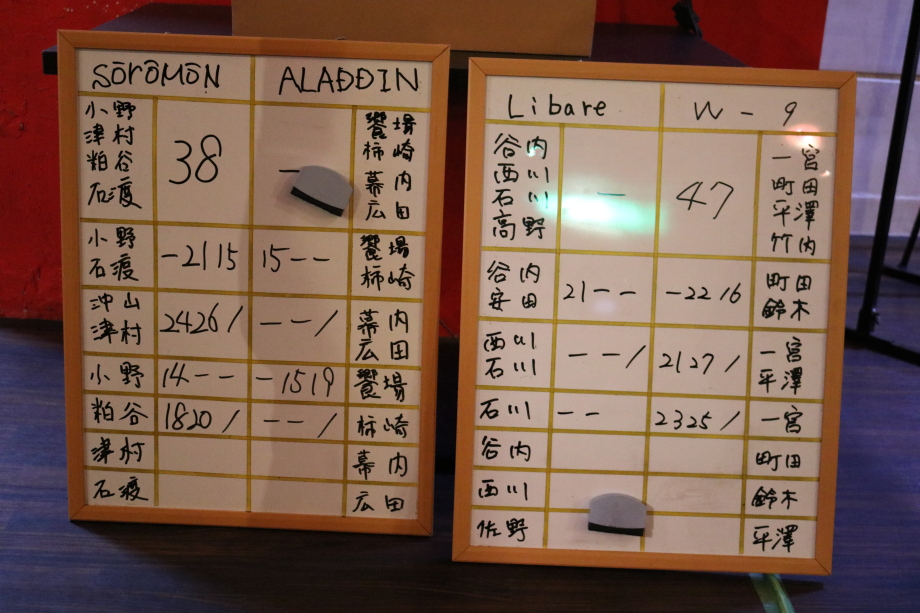 SōrōMōN ALADDIN
小野 饗場
津村 柿崎
粕谷 38 — 幕内
石渡 広田
小野 -2115 15-- 饗場
石渡 柿崎
沖山 2426/ --/ 幕内
津村 広田
小野 14-- -1519 饗場
粕谷 1820/ --/ 柿崎
津村 幕内
石渡 広田
Libare W-9
谷内 一宮
西川 町田
石川 — 47 平澤
高野 竹内
谷内 21-- -2216 町田
安田 鈴木
西川 --/ 2127/ 一宮
石川 平澤
石川 -- 2325/ 一宮
谷内 町田
西川 鈴木
佐野 平澤